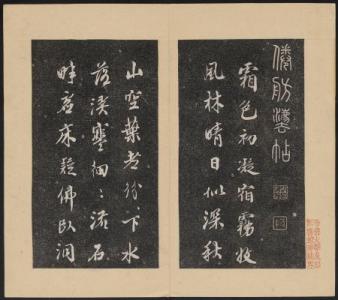 倦舫灋帖
霜色初凝宿霧收
風林晴日似深秋
山空葉老紛〻下水
落溪寒細〻流石
畔床疑佛臥洞